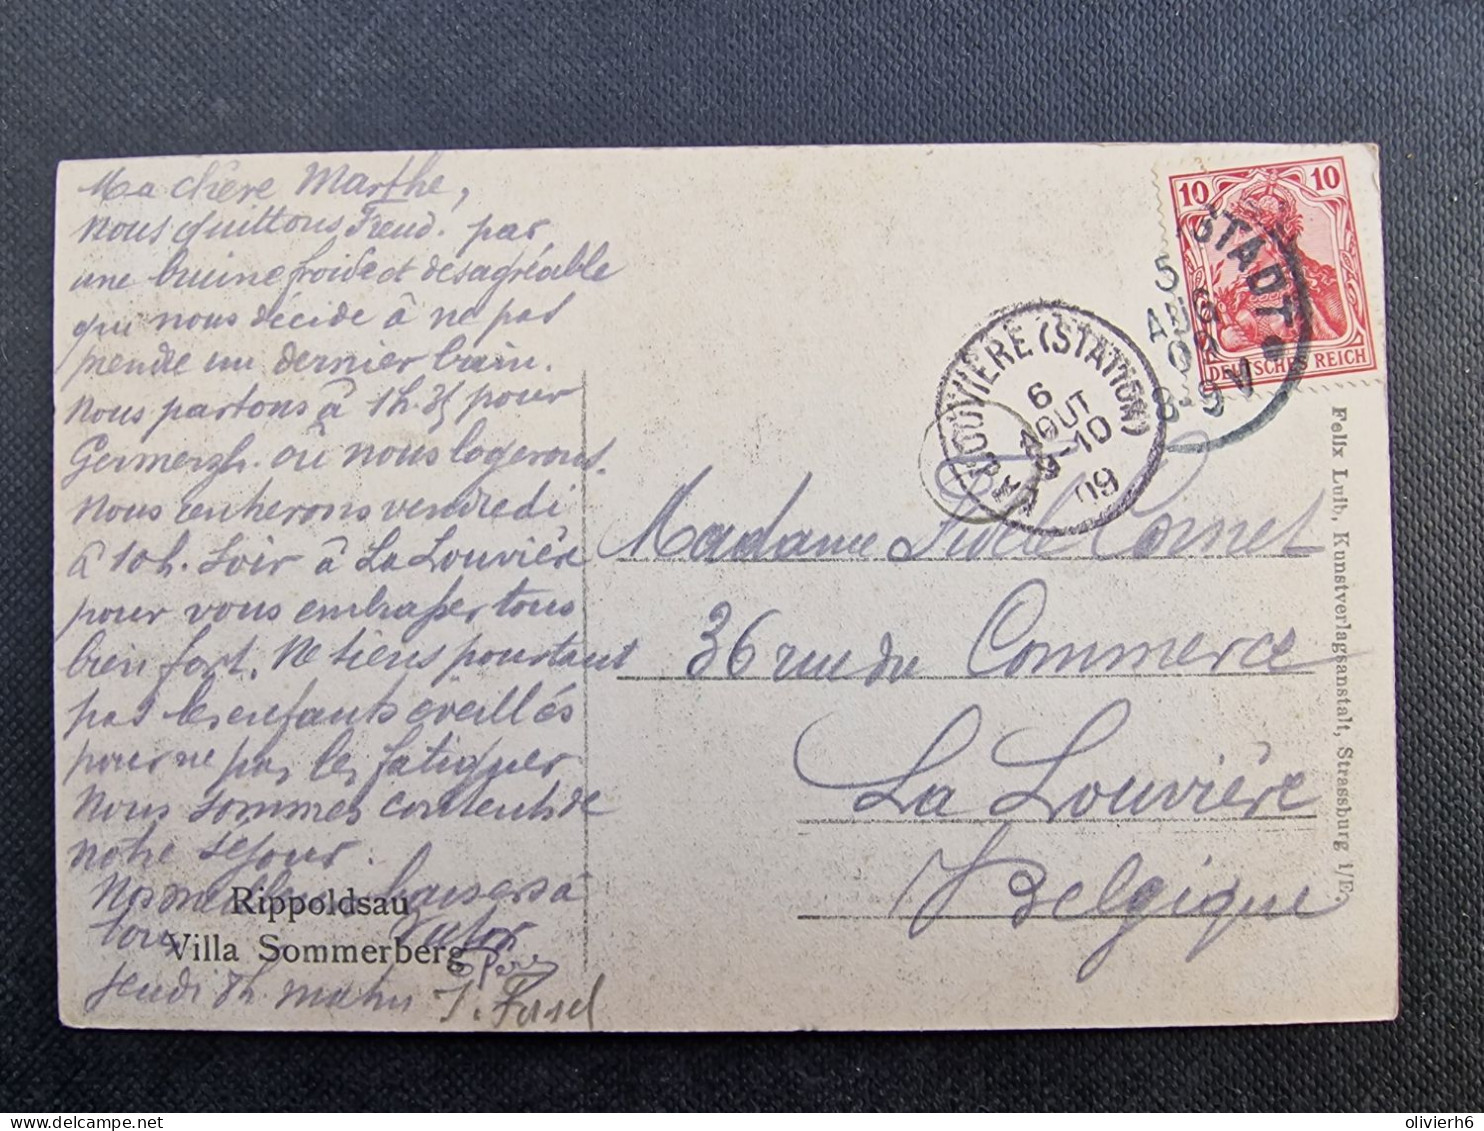 Ma chère Marthe,
Nous quittons Freud. par
une bruine froide et désagréable
qui nous décide à ne pas
prendre un dernier bain.
Nous partons à 1h.35 pour
où nous logerons.
Nous rentrerons vendredi
à 10h. soir à La Louvière
pour vous embrasser tous
bien fort. Ne tiens pourtant
pas les enfants éveillés
pour ne pas les fatiguer
Nous sommes contents de
notre séjour.
baisers à
tous Victor
Jeudi 8h. matin
Rippoldsau
Villa Sommerberg
10 10
DEUTSCHES REICH
STADT
5 8
AUG
09
8-9 V
LA LOUVIÈRE (STATION)
6
AOUT
9-10
09
Madame Cornet
36 rue du Commerce
La Louvière
Belgique
Felix Luib, Kunstverlagsanstalt, Strassburg i/E.
olivierh6